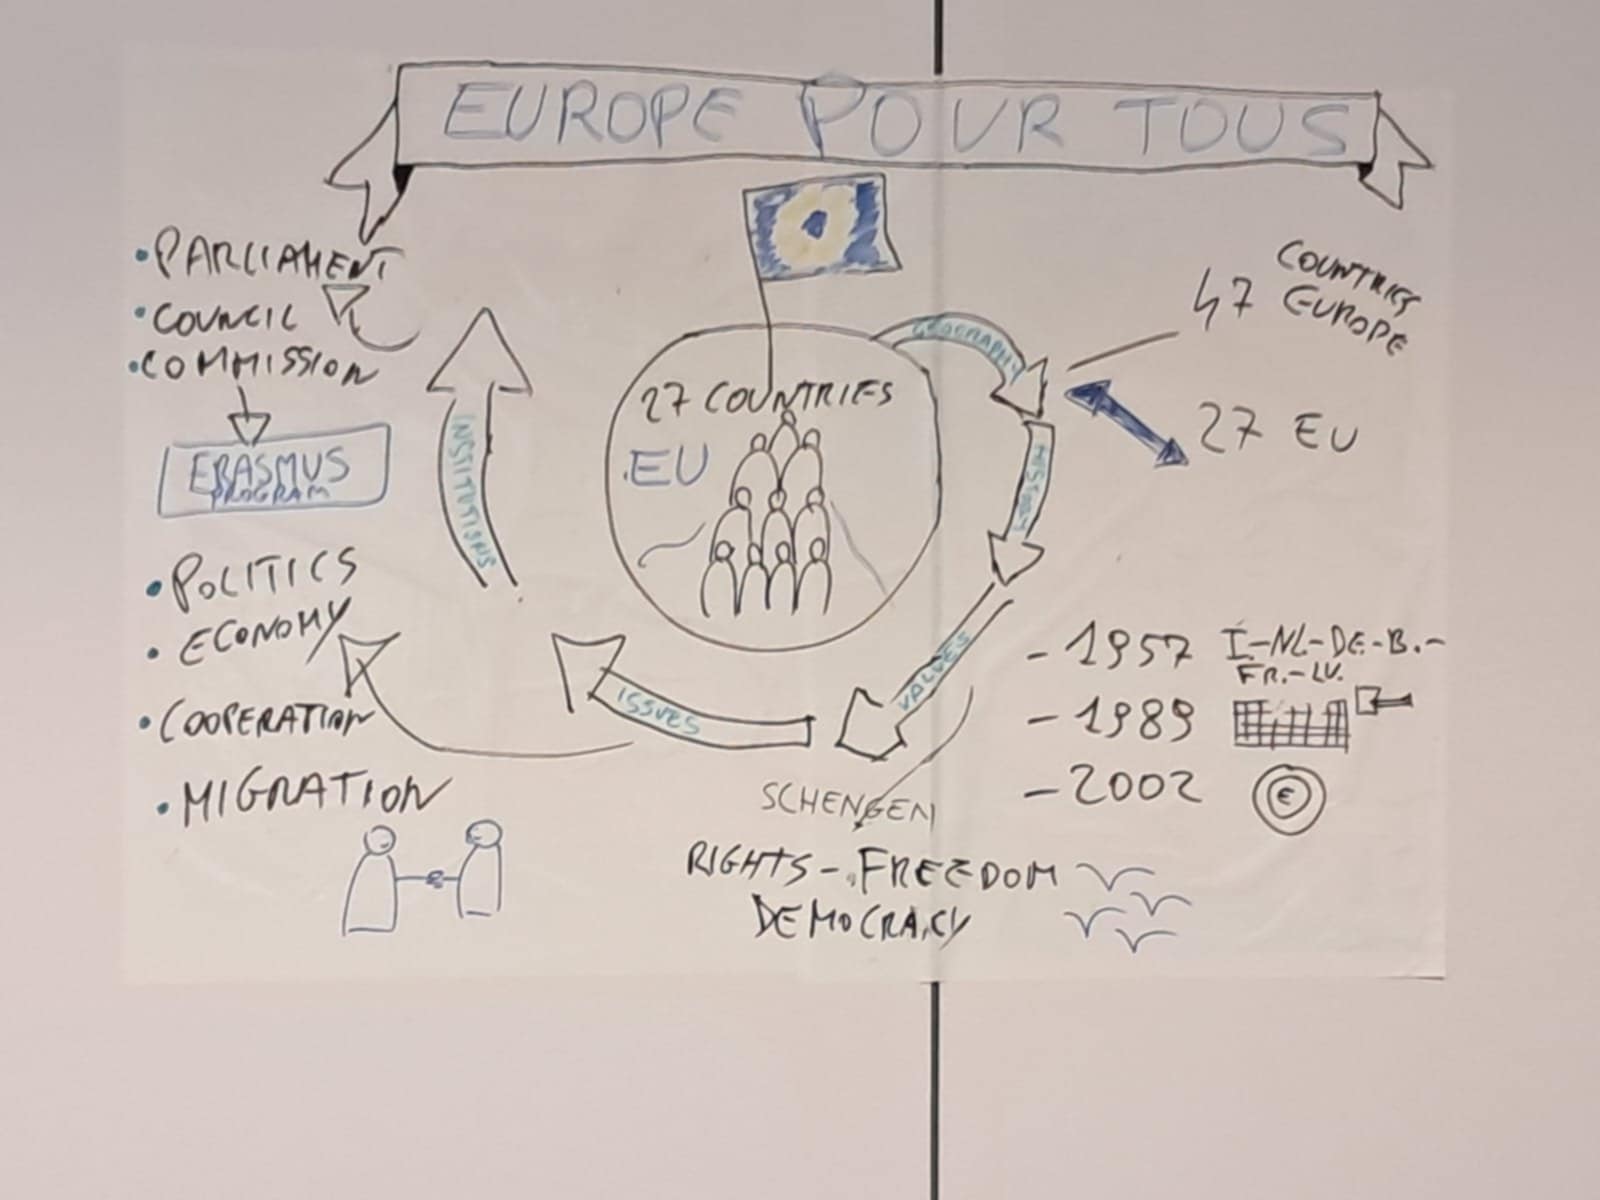 EUROPE POUR TOUS
• PARLIAMENT
• COUNCIL
• COMMISSION
ERASMUS
PROGRAM
INSTITUTIONS
27 COUNTRIES
EU
GEOGRAPHY
47 COUNTRIES
EUROPE
27 EU
HISTORY
VALUES
ISSUES
• POLITICS
• ECONOMY
• COOPERATION
• MIGRATION
- 1957 I-NL-DE-B.-
FR.-LU.
- 1989
- 2002 €
SCHENGEN
RIGHTS - FREEDOM
DEMOCRACY